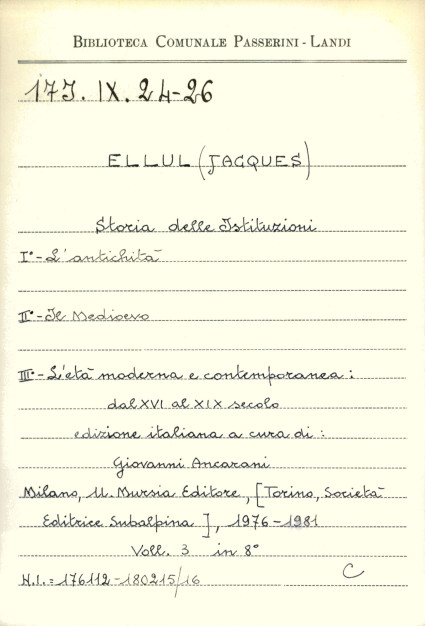 BIBLIOTECA COMUNALE PASSERINI - LANDI
17J. IX. 24-26
ELLUL (JACQUES)
Storia delle Istituzioni
I°- L'antichità
II°- Il Medioevo
III°- L'età moderna e contemporanea:
dal XVI al XIX secolo
edizione italiana a cura di:
Giovanni Ancarani
Milano, U. Mursia Editore, [Torino, Società
Editrice Subalpina], 1976-1981
Voll. 3 in 8°
N.I.= 176112-180215/16 C